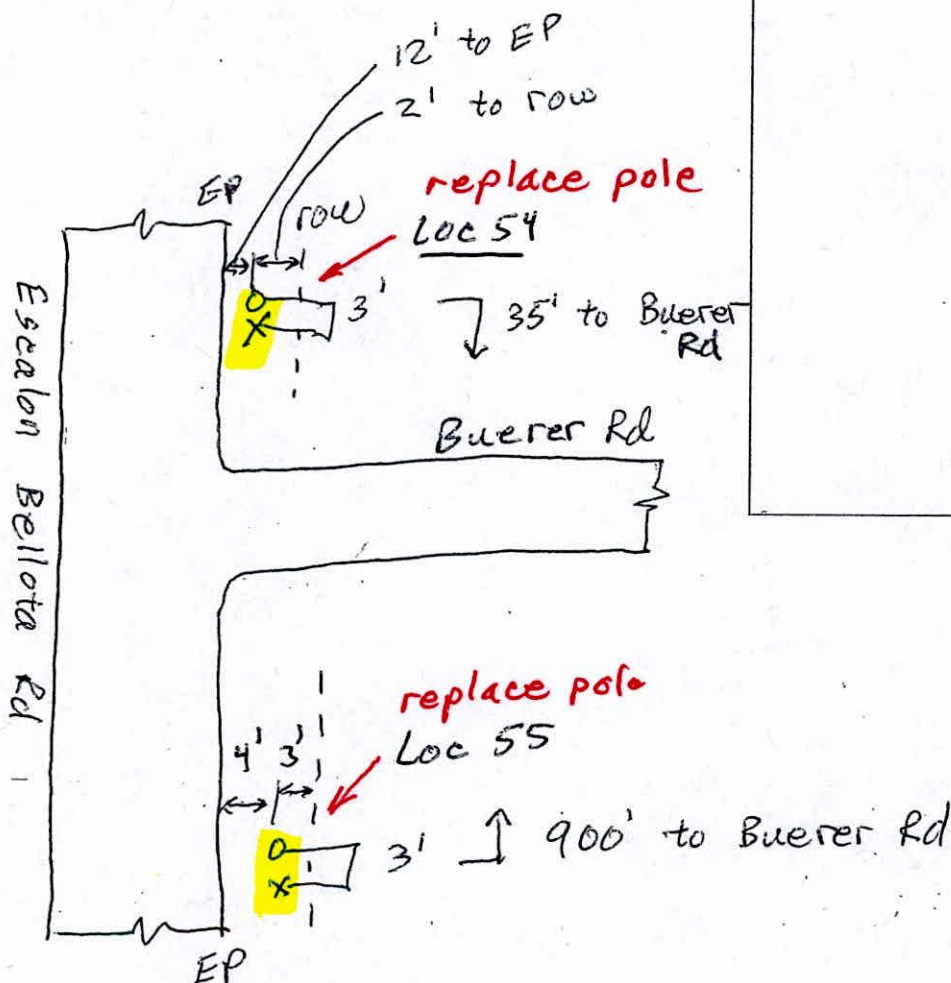 12' to EP
2' to row
EP
row
replace pole
Loc 54
3'
35' to Buerer
Rd
Buerer Rd
Escalon Bellota Rd
replace pole
Loc 55
4' 3'
3'
900' to Buerer Rd
EP
O
X
O
X